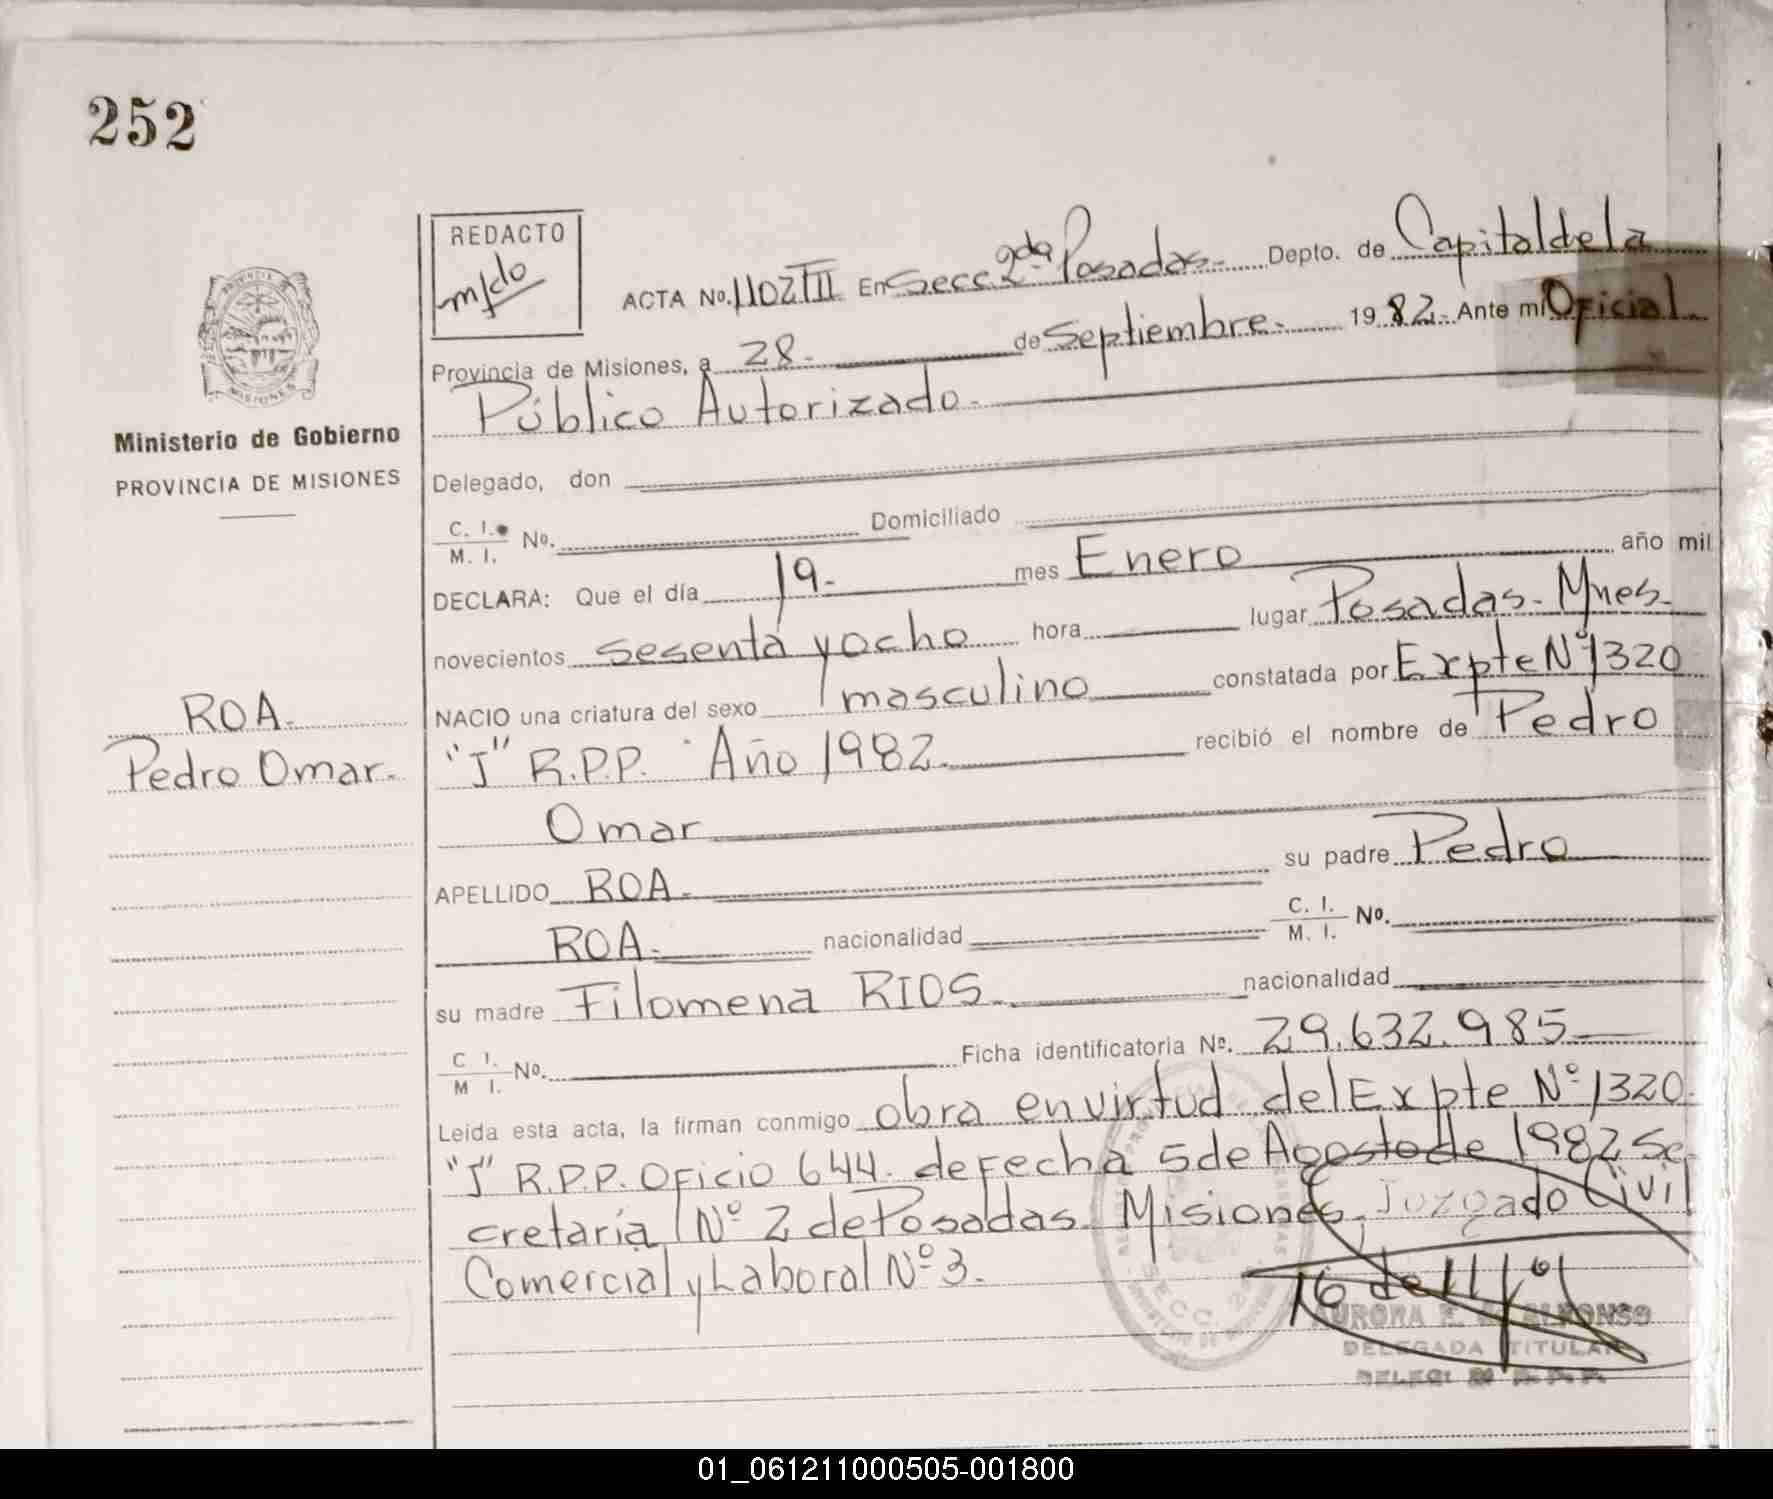 252
REDACTO
ACTA No. 1102 TIII En Secc. 2da Posadas- Depto. de Capital de la
Provincia de Misiones, a 28- de Septiembre- 1982- Ante mi Oficial
Público Autorizado-
Ministerio de Gobierno
PROVINCIA DE MISIONES
Delegado, don
C. I. No. Domiciliado
M. I.
DECLARA: Que el día 19- mes Enero año mil
novecientos sesenta y ocho hora lugar Posadas- Mnes-
ROA-
NACIO una criatura del sexo masculino constatada por Expte Nº 1320
Pedro Omar-
"J" R.P.P. Año 1982- recibió el nombre de Pedro
Omar
APELLIDO ROA- su padre Pedro
ROA- nacionalidad C. I. No.
M. I.
su madre Filomena RIOS- nacionalidad
C I. No. Ficha identificatoria No. 29.632.985-
M I.
Leida esta acta, la firman conmigo obra en virtud del Expte Nº 1320-
"J" R.P.P. Oficio 644- de Fecha 5 de Agosto de 1982 Se
cretaría Nº 2 de Posadas- Misiones, Juzgado Civil
Comercial y Laboral Nº 3-
SECC. 2
AURORA E. ALFONSO
DELEGADA TITULAR
01_061211000505-001800